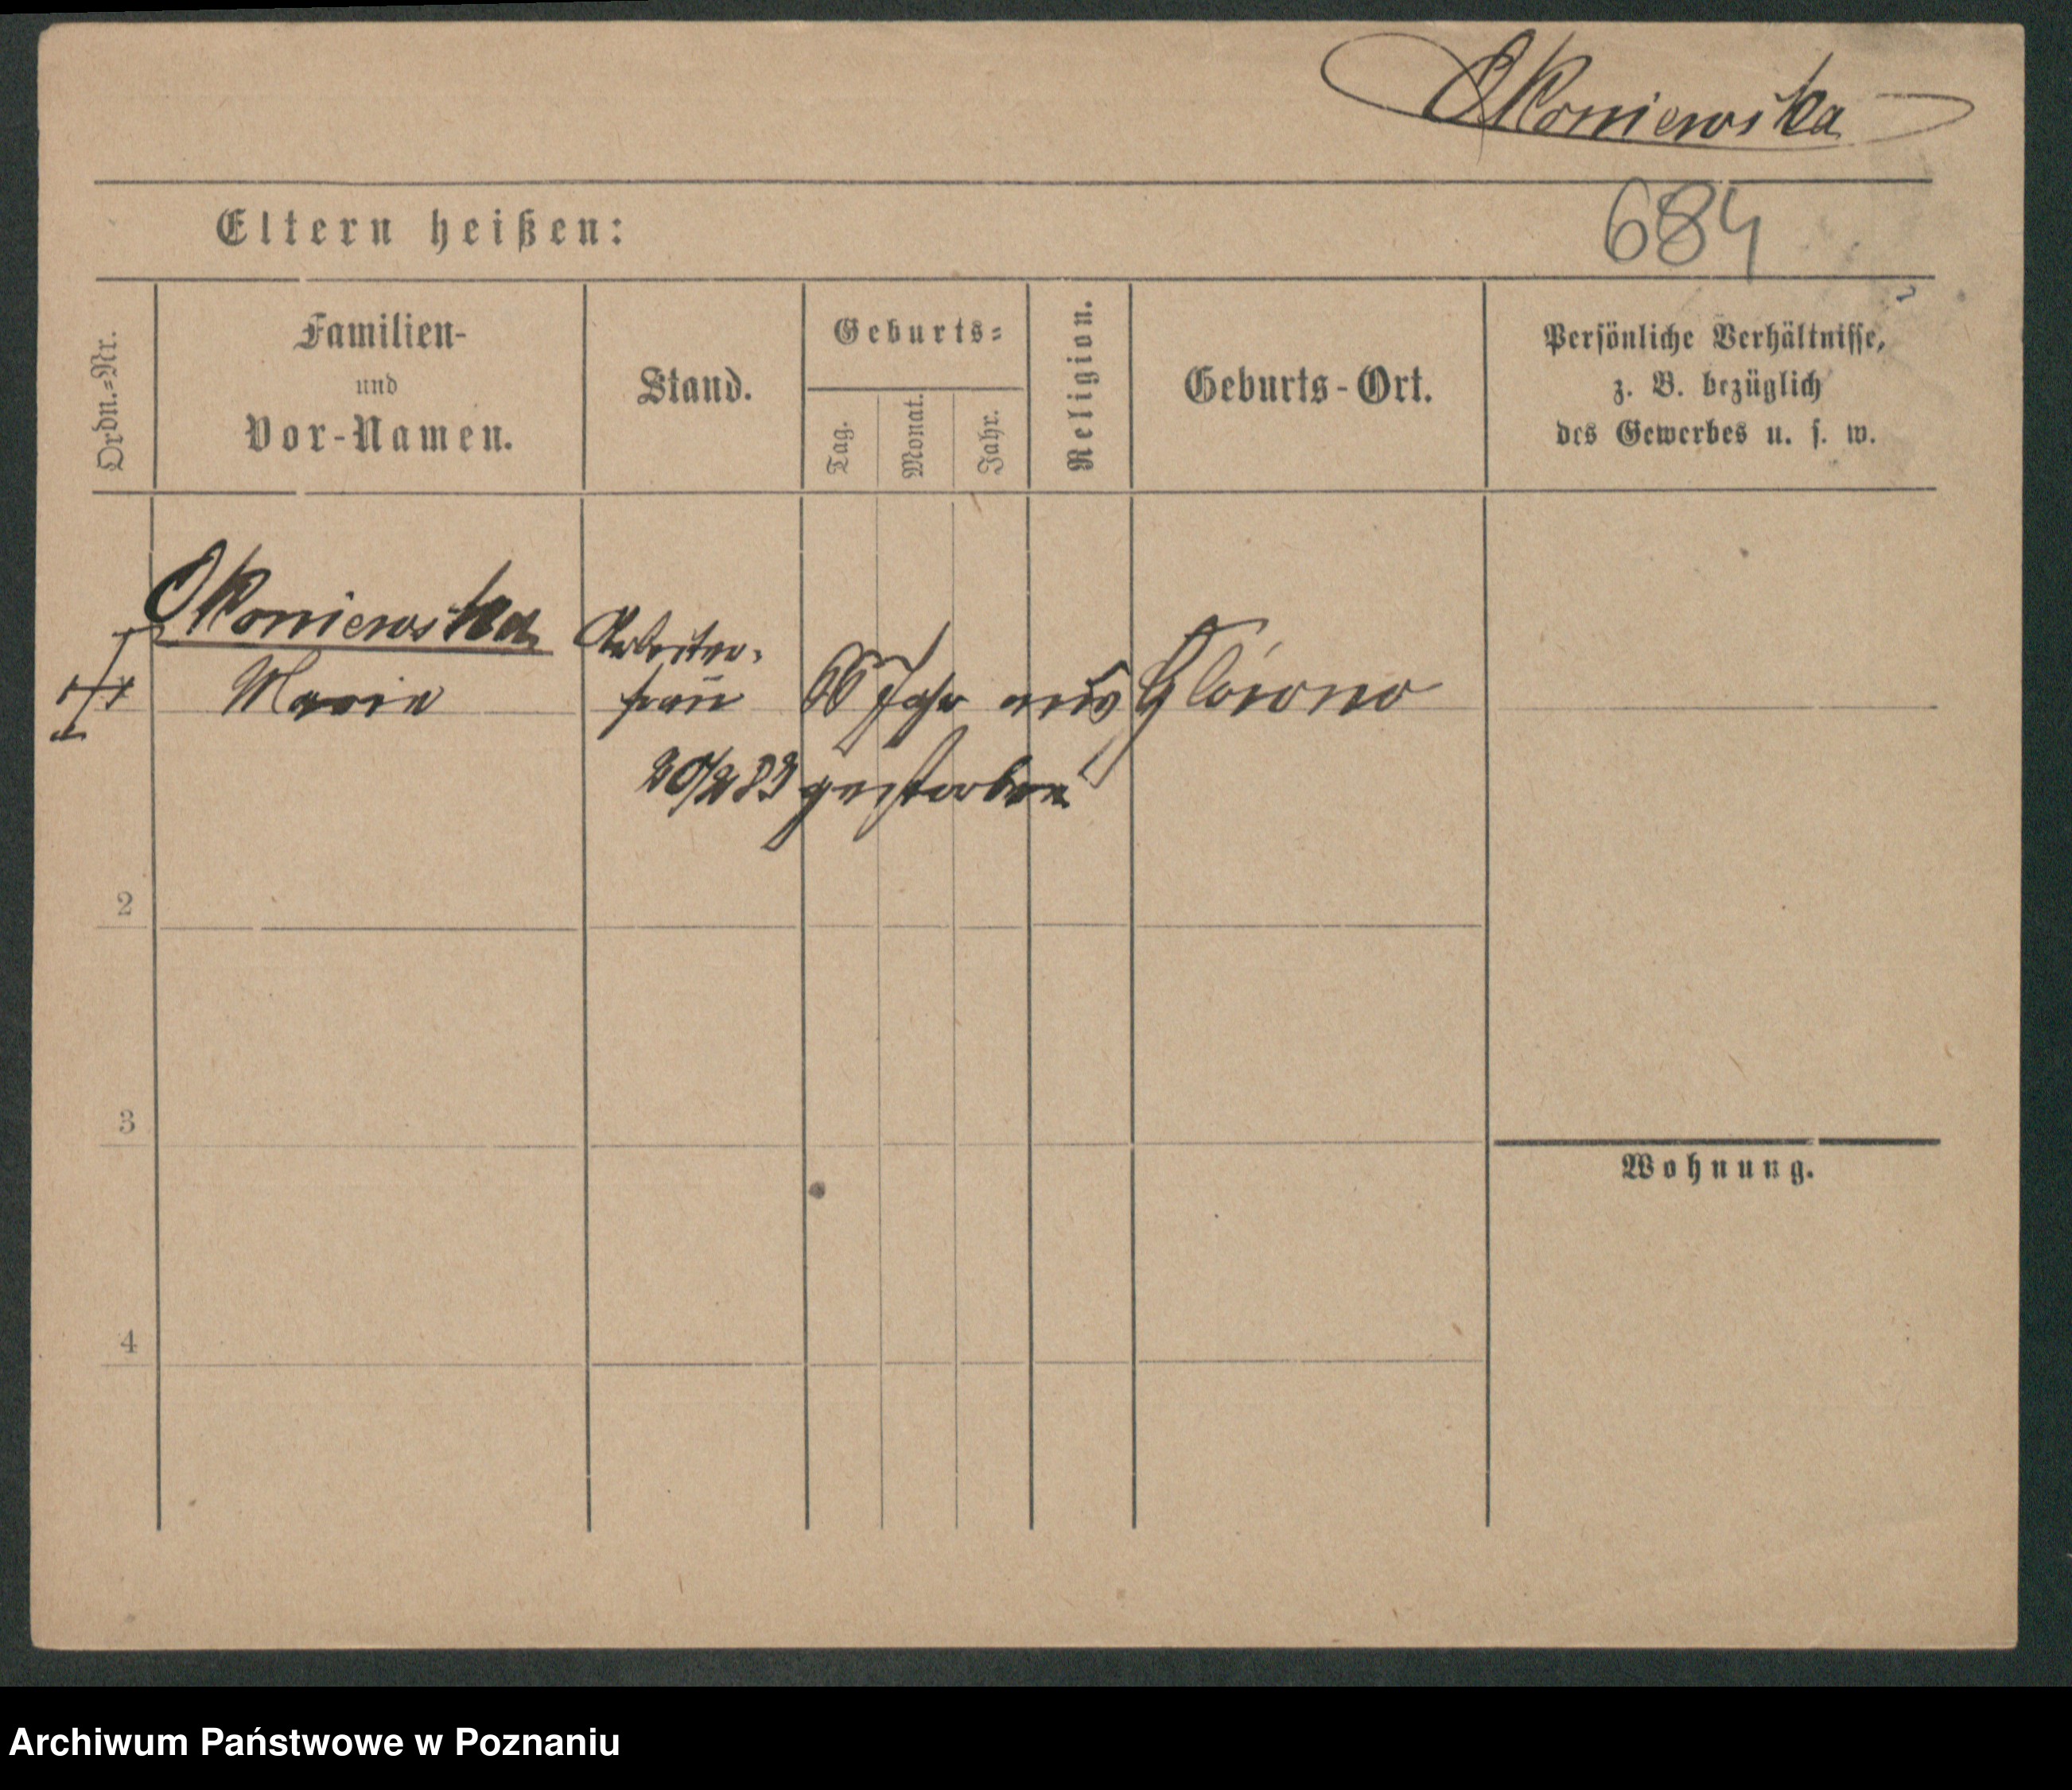 Okoniewska
684
Eltern heißen:
Ordn.=Nr.
Familien-
und
Vor-Namen.
Stand.
Geburts=
Tag.
Monat.
Jahr.
Religion.
Geburts-Ort.
Persönliche Verhältnisse,
z. B. bezüglich
des Gewerbes u. s. w.
Okoniewska Arbeiter-
Maria frau 66 Jahr aus Glówno
20/2 83 gestorben
2
3
Wohnung.
4
Archiwum Państwowe w Poznaniu